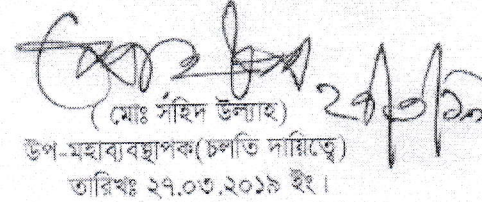 (মোঃ সহিদ উল্যাহ)
উপ-মহাব্যবস্থাপক(চলতি দায়িত্বে)
তারিখঃ ২৭.০৩.২০১৯ ইং।